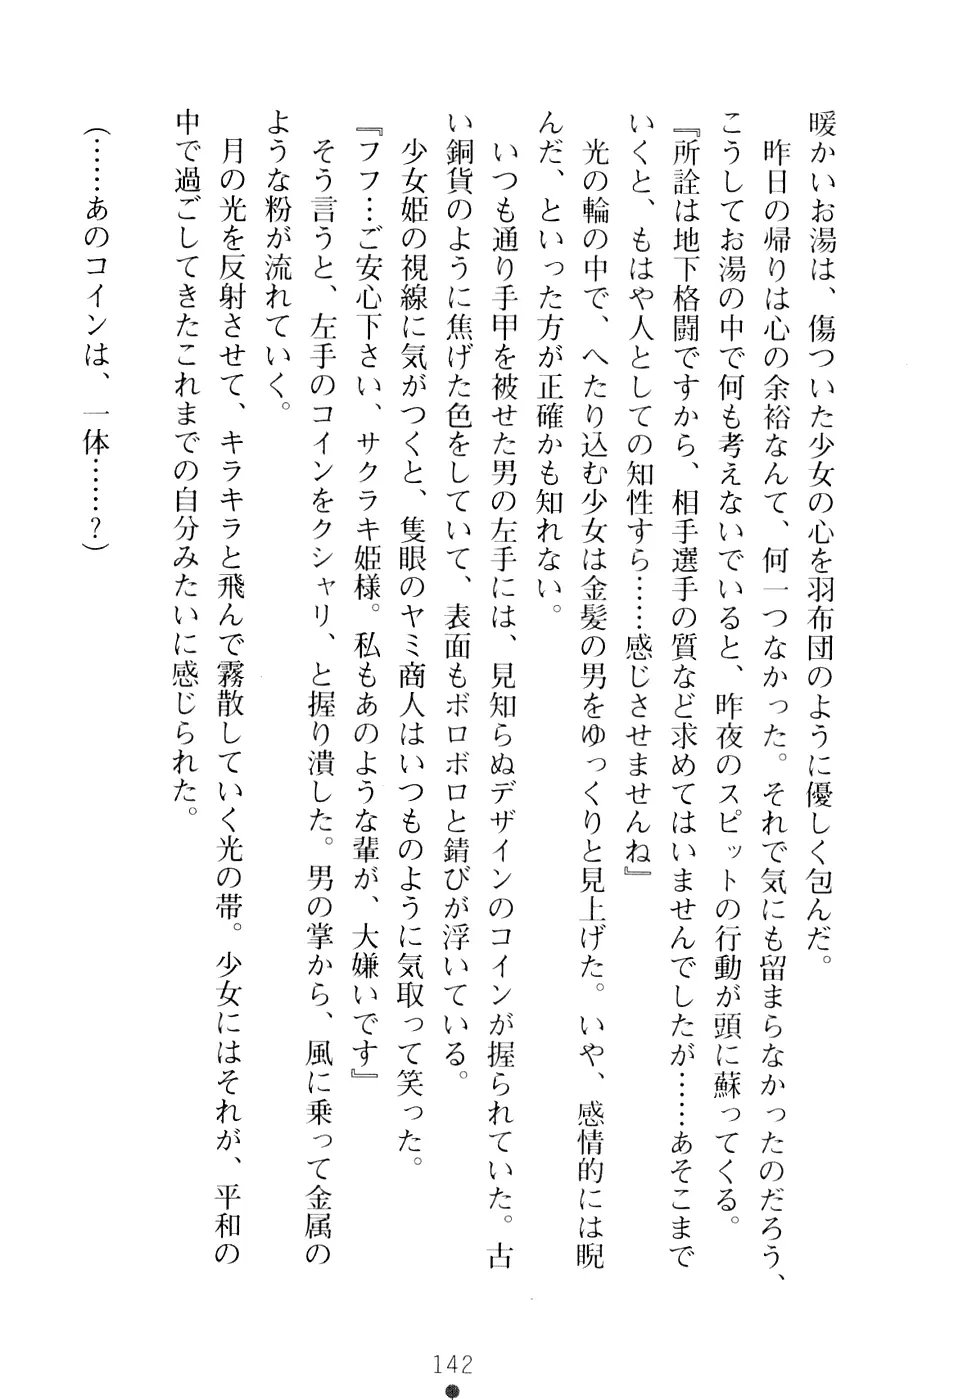 暖かいお湯は、傷ついた少女の心を羽布団のように優しく包んだ。
昨日の帰りは心の余裕なんて、何一つなかった。それで気にも留まらなかったのだろう、
こうしてお湯の中で何も考えないでいると、昨夜のスピットの行動が頭に蘇ってくる。
『所詮は地下格闘ですから、相手選手の質など求めてはいませんでしたが……あそこまで
いくと、もはや人としての知性すら……感じさせませんね』
光の輪の中で、へたり込む少女は金髪の男をゆっくりと見上げた。いや、感情的には睨
んだ、といった方が正確かも知れない。
いつも通り手甲を被せた男の左手には、見知らぬデザインのコインが握られていた。古
い銅貨のように焦げた色をしていて、表面もボロボロと錆びが浮いている。
少女姫の視線に気がつくと、隻眼のヤミ商人はいつものように気取って笑った。
『フフ…ご安心下さい、サクラキ姫様。私もあのような輩が、大嫌いです』
そう言うと、左手のコインをクシャリ、と握り潰した。男の掌から、風に乗って金属の
ような粉が流れていく。
月の光を反射させて、キラキラと飛んで霧散していく光の帯。少女にはそれが、平和の
中で過ごしてきたこれまでの自分みたいに感じられた。
（……あのコインは、一体……？）
142